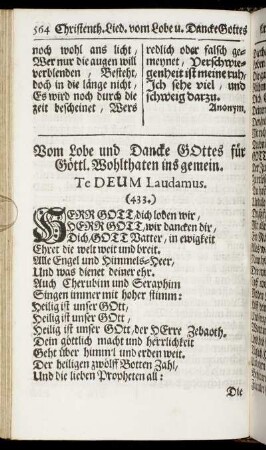 564 Christenth. Lied. vom Lobe u. Dancke Gottes
noch wohl ans licht,
Wer nur die augen will
verblenden, Besteht,
doch in die länge nicht,
Es wird noch durch die
zeit bescheinet, Wers
redlich oder falsch ge-
meynet, Verschwie-
genheit ist meine ruh,
Ich sehe viel, und
schweig darzu.
Anonym.
Vom Lobe und Dancke GOttes für
Göttl. Wohlthaten ins gemein.
Te DEUM Laudamus.
(433.)
HERR GOTT, dich loben wir,
HERR GOTT, wir dancken dir,
Dich, GOTT Vatter, in ewigkeit
Ehret die welt weit und breit.
Alle Engel und Himmels-Heer,
Und was dienet deiner ehr.
Auch Cherubim und Seraphim
Singen immer mit hoher stimm:
Heilig ist unser GOtt,
Heilig ist unser GOtt,
Heilig ist unser GOtt, der HErre Zebaoth.
Dein göttlich macht und herrlichkeit
Geht über himml und erden weit.
Der heiligen zwölff Botten Zahl,
Und die lieben Propheten all:
Die